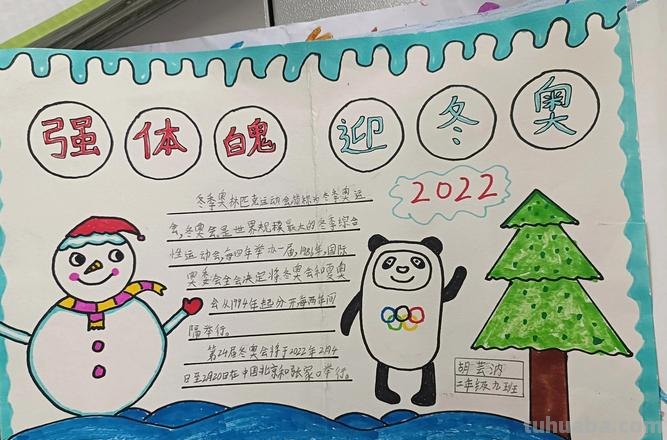 强体魄 迎冬奥
2022
冬季奥林匹克运动会简称为冬季奥运
会,冬奥会是世界规模最大的冬季综合
性运动会,每四年举办一届,1986年,国际
奥委会全会决定将冬奥会和夏奥
会从1994年起分开每两年间
隔举行。
第24届冬奥会将于2022年2月4
日至2月20日在中国北京和张家口举行。
胡芸汭
二年级九班
tuhuaba.com